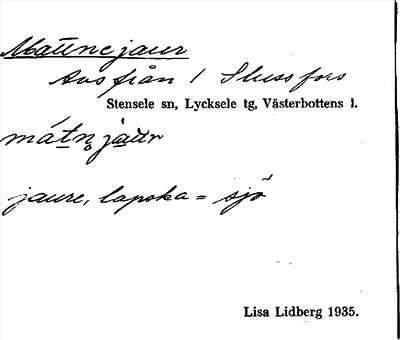 Mattnejaur
Avs från 1 Slussfors
Stensele sn, Lycksele tg, Västerbottens l.
mátn̥ jàur
jaure, lapska = sjö
Lisa Lidberg 1935.